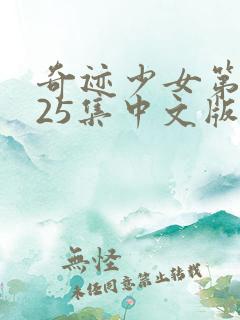 奇迹少女第
25集中文版
無怪
未经同意禁止转载